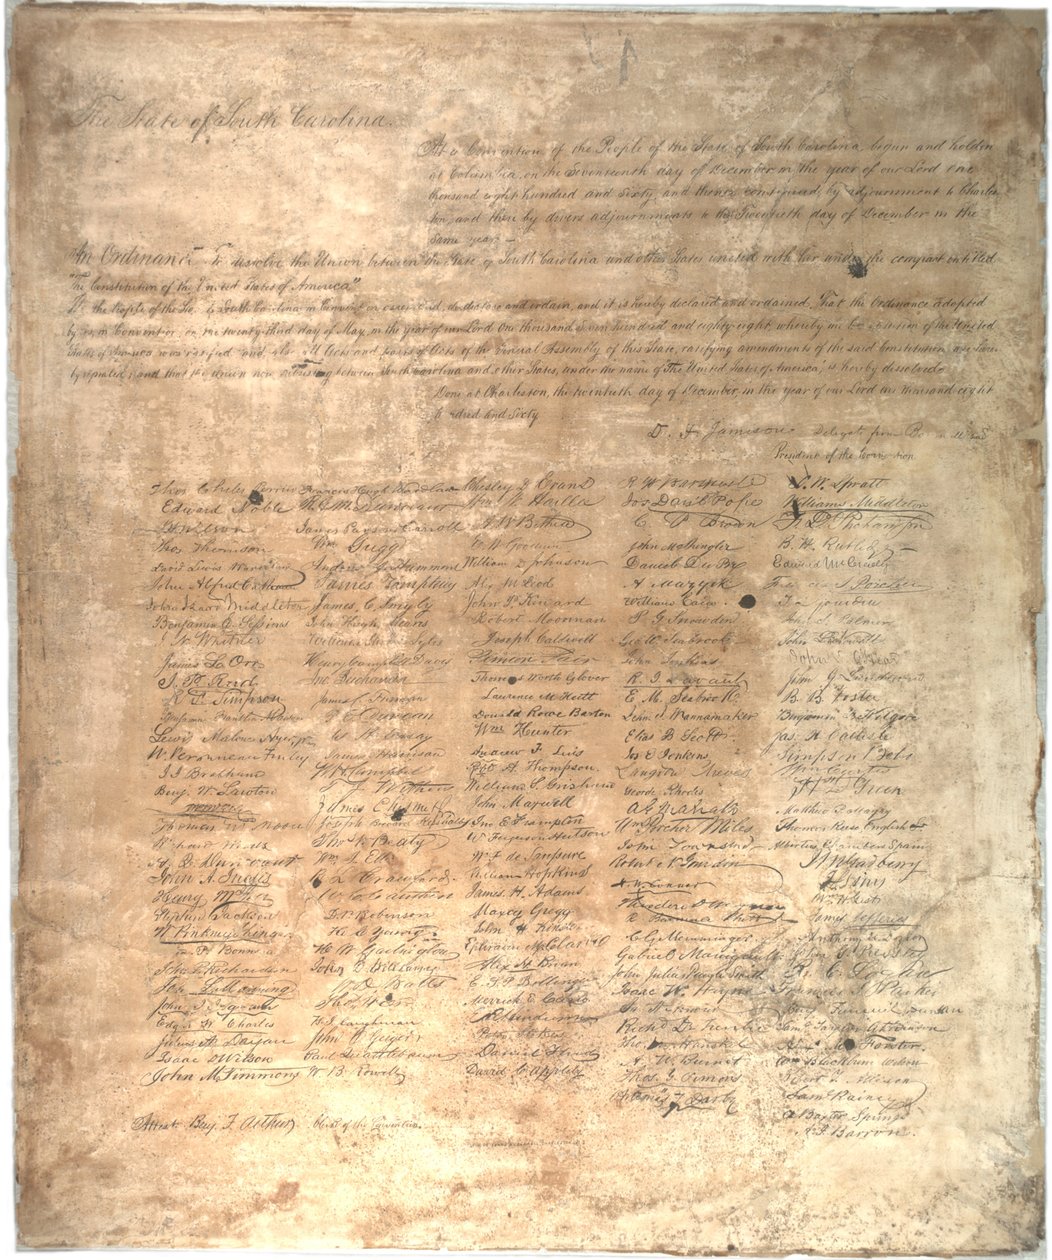 The State of South Carolina.
At a Convention of the People of the State of South Carolina, begun and holden
at Columbia, on the Seventeenth day of December in the year of our Lord one
thousand eight hundred and sixty, and thence continued, by adjournment to Charles
ton, and there by divers adjournments to the Twentieth day of December in the
same year –
An Ordinance To dissolve the Union between the State of South Carolina and other States united with her under the compact entitled
"The Constitution of the United States of America."
We, the People of the State of South Carolina in Convention assembled, do declare and ordain, and it is hereby declared and ordained, That the Ordinance adopted
by us in Convention, on the twenty-third day of May, in the year of our Lord One thousand seven hundred and eighty-eight, whereby the Constitution of the United
States of America was ratified, and also all Acts and parts of Acts of the General Assembly of this State, ratifying amendments of the said Constitution, are here
by repealed; and that the Union now subsisting between South Carolina and other States, under the name of "The United States of America," is hereby dissolved.
Done at Charleston, the twentieth day of December, in the year of our Lord one thousand eight
hundred and sixty
D. F. Jamison Delegate from
President of the Convention
Thos Chiles Perrin
Edward Noble
Thos Thomson
David Lewis Wardlaw
John Alfred Calhoun
John Izard Middleton
Benjamin E. Sessions
J. N. Whitner
James L. Orr
J. P. Reed
R. F. Simpson
Benjamin Franklin
Lewis Malone Ayer, Jr.
W. Peronneau Finley
J. J. Brabham
Benj. W. Lawton
Thomas W. Moore
Richard Woods
A. Q. Dunovant
John A. Inglis
Henry McIver
Stephen Jackson
W. Pinkney
John P. Richardson
John J. Ingram
Edgar W. Charles
Julius A. Dargan
Isaac D Wilson
John M. Timmons
Francis Hugh Wardlaw
R. G. M. Dunovant
James Parsons Carroll
Wm Gregg
Andrew J. Hammond
James Tompkins
James C. Smyly
John Hugh Means
William Strother Lyles
Henry Campbell Davis
Jno Buchanan
James C. Furman
P. E. Duncan
W. K. Easley
James Harrison
W. H. Campbell
T. J. Withers
James Chesnut Jr.
Joseph Brevard Kershaw
Thos W. Beaty
Wm J. Ellis
R. L. Crawford
W. C. Cauthen
D. P. Robinson
H. C. Young
H. W. Garlington
John D. Williams
W. D. Watts
Thos Wier
H. I. Caughman
John C Geiger
Paul Quattlebaum
W. B. Rowell
Chesley D. Evans
Wm W. Harllee
A. W. Bethea
E. W. Goodwin
William D. Johnson
Alex McLeod
John P. Kinard
Robert Moorman
Joseph Caldwell
Simeon Fair
Thomas Worth Glover
Lawrence M. Keitt
Donald Rowe Barton
Wm Hunter
Andrew F. Lewis
Robt A. Thompson
William S. Grisham
John Maxwell
Jno E Frampton
W Ferguson Hutson
W. F. de Saussure
William Hopkins
James H. Adams
Maxcy Gregg
John H. Kinsler
Ephraim M. Clarke
Alex H. Brown
E. S. P. Bellinger
Merrick E. Carn
E. R. Henderson
Peter Stokes
Daniel Flud
David C. Appleby
R. W. Barnwell
Jos Danl Pope
C. P. Brown
John M Shingler
Daniel Du Pre
A Mazyck
William Cain
P. G. Snowden
Geo W. Seabrook
John Jenkins
R. J. Davant
E. M. Seabrook
John J. Wannamaker
Elias B. Scott
Jos E Jenkins
Langdon Cheves
George Rhodes
A G Magrath
Wm Porcher Miles
John Townsend
Robert N. Gourdin
H. W. Conner
Theodore D. Wagner
R. Barnwell Rhett
C. G. Memminger
Gabriel Manigault
John Julius Pringle Smith
Isaac W. Hayne
Jn. H. Honour
Richd De Treville
Thos M. Hanckel
A. W. Burnet
Thos. Y. Simons
Artemas T. Darby
L. W. Spratt
Williams Middleton
F. D. Richardson
B. H. Rutledge
Edward McCrady
Francis J. Porcher
T. L. Gourdin
John S. Palmer
John L. Nowell
John S. O'Hear
John G. Landrum
B. B. Foster
Benjamin F. Kilgore
Jas. H. Carlisle
Simpson Bobo
Wm Curtis
H. D. Green
Matthew P. Mayes
Thomas Reese English Sr
Albertus Chambers Spain
J. M. Gadberry
J. S. Sims
Wm H. Gist
James Jefferies
Anthony W. Dozier
John G. Pressley
R. C. Logan
Francis S. Parker
Benj. Faneuil Dunkin
Saml. Taylor Atkinson
Alex M Forster
Wm Blackburn Wilson
Robert T. Allison
Saml Rainey
A Baxter Springs
A. I. Barron
Attest Benj. F. Arthur, Clerk of the Convention